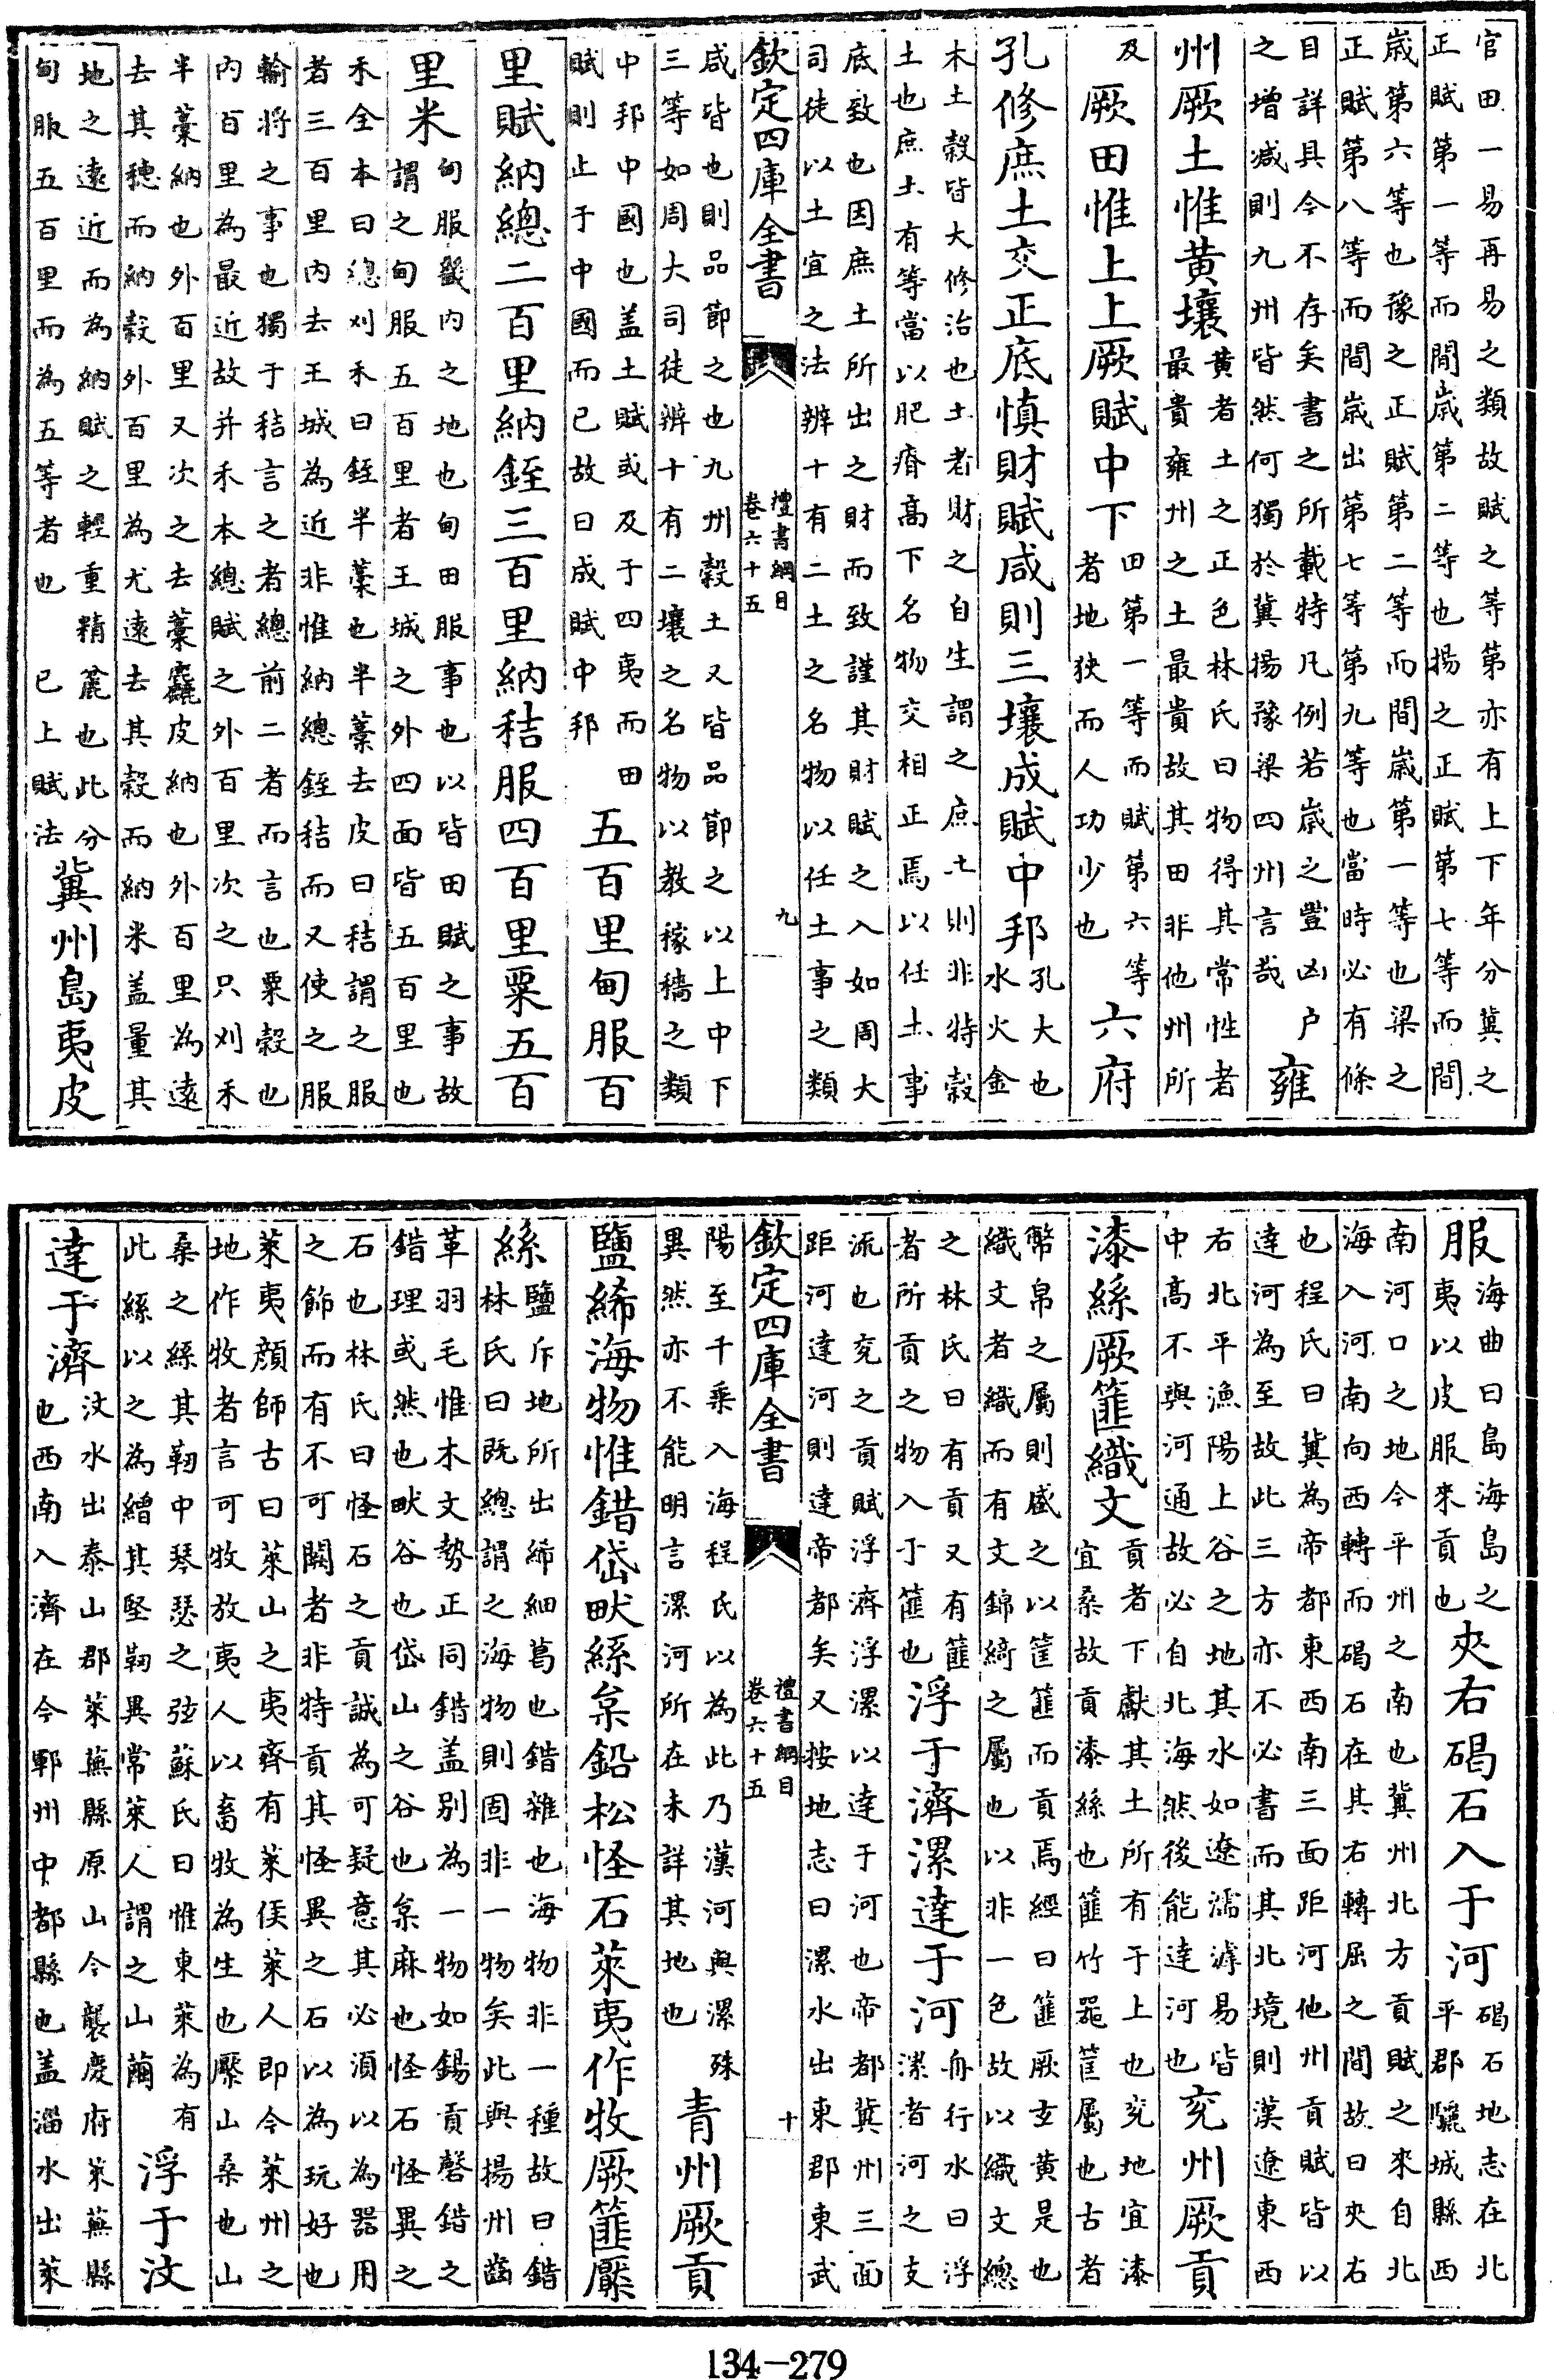 官田一易再易之類故賦之等第亦有上下年分冀之
正賦第一等而間歲第二等也揚之正賦第七等而間
歲第六等也豫之正賦第二等而間歲第一等也梁之
正賦第八等而間歲出第七等第九等也當時必有條
目詳具今不存矣書之所載特凡例若歲之豐凶户
之增减則九州皆然何獨於冀揚豫梁四州言哉
雍
州厥土惟黄壤
黄者土之正色林氏曰物得其常性者
最貴雍州之土最貴故其田非他州所
及
厥田惟上上厥賦中下
田第一等而賦第六等
者地狹而人功少也
六府
孔修庶土交正底慎財賦咸則三壤成賦中邦
孔大也
水火金
木土榖皆大修治也土者財之自生謂之庶土則非特榖
土也庶土有等當以肥瘠高下名物交相正焉以任土事
底致也因庶土所出之財而致謹其財賦之入如周大
司徒以土宜之法辨十有二土之名物以任土事之類
欽定四庫全書
禮書綱目
卷六十五
九
咸皆也則品節之也九州榖土又皆品節之以上中下
三等如周大司徒辨十有二壤之名物以教稼穡之類
中邦中國也盖土賦或及于四夷而田
賦則止于中國而已故曰成賦中邦
五百里甸服百
里賦納總二百里納銍三百里納秸服四百里粟五百
里米
甸服畿内之地也甸田服事也以皆田賦之事故
謂之甸服五百里者王城之外四面皆五百里也
禾全本曰總刈禾曰銍半藁也半藁去皮曰秸謂之服
者三百里内去王城為近非惟納總銍秸而又使之服
輸將之事也獨于秸言之者總前二者而言也粟榖也
内百里為最近故并禾本總賦之外百里次之只刈禾
半藁納也外百里又次之去藁麤皮納也外百里為遠
去其穗而納榖外百里為尤遠去其榖而納米盖量其
地之遠近而為納賦之輕重精麄也此分
甸服五百里而為五等者也 已上賦法
冀州島夷皮
服
海曲曰島海島之
夷以皮服來貢也
夾右碣石入于河
碣石地志在北
平郡驪城縣西
南河口之地今平州之南也冀州北方貢賦之來自北
海入河南向西轉而碣石在其右轉屈之間故曰夾右
也程氏曰冀為帝都東西南三面距河他州貢賦皆以
逹河為至故此三方亦不必書而其北境則漢遼東西
右北平漁陽上谷之地其水如遼濡滹易皆
中高不與河通故必自北海然後能達河也
兖州厥貢
漆絲厥篚織文
貢者下獻其土所有于上也兖地宜漆
宜桑故貢漆絲也篚竹器筐屬也古者
幣帛之屬則盛之以筐篚而貢焉經曰篚厥玄黄是也
織文者織而有文錦綺之屬也以非一色故以織文總
之林氏曰有貢又有篚
者所貢之物入于篚也
浮于濟漯達于河
舟行水曰浮
漯者河之支
流也兖之貢賦浮濟浮漯以達于河也帝都冀州三面
距河達河則達帝都矣又按地志曰漯水出東郡東武
欽定四庫全書
禮書綱目
卷六十五
十
陽至千乘入海程氏以為此乃漢河與漯殊
異然亦不能明言漯河所在未詳其地也
青州厥貢
鹽絺海物惟錯岱畎絲枲鉛松怪石萊夷作牧厥篚檿
絲
鹽斥地所出絺細葛也錯雜也海物非一種故曰錯
林氏曰既總謂之海物則固非一物矣此與揚州齒
革羽毛惟木文勢正同錯盖别為一物如錫貢磬錯之
錯理或然也畎谷也岱山之谷也枲麻也怪石怪異之
石也林氏曰怪石之貢誠為可疑意其必湏以為器用
之飾而有不可闕者非特貢其怪異之石以為玩好也
萊夷顔師古曰萊山之夷齊有萊侯萊人即今萊州之
地作牧者言可牧放夷人以畜牧為生也檿山桑也山
桑之絲其韌中琴瑟之弦蘇氏曰惟東萊為有
此絲以之為繒其堅韌異常萊人謂之山繭
浮于汶
達于濟
汶水出泰山郡萊蕪縣原山今襲慶府萊蕪縣
也西南入濟在今鄆州中都縣也盖淄水出萊
134-279